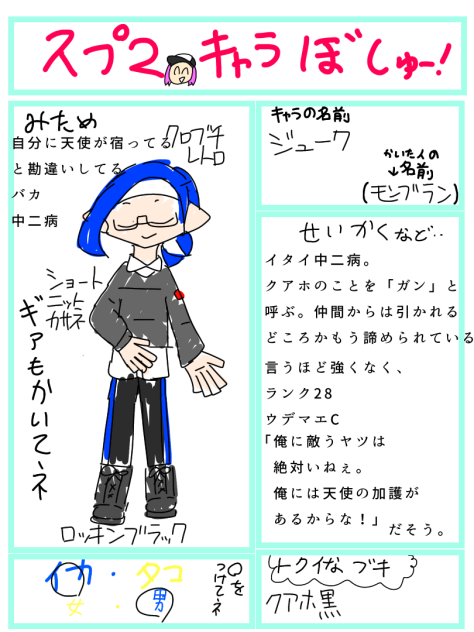 スプ2 キャラ ぼしゅー!
みため
自分に天使が宿ってる
と勘違いしてる
バカ
中二病
クロブチ
レトロ
ショート
ニット
カサネ
ギアもかいてネ
ロッキンブラック
イカ・タコ
女・男
○を
つけてネ
キャラの名前
ジューク
かいた人の
↓名前
(モンブラン)
せいかくなど‥
イタイ中二病。
クアホのことを「ガン」と
呼ぶ。仲間からは引かれる
どころかもう諦められている
言うほど強くなく、
ランク28
ウデマエC
「俺に敵うヤツは
絶対いねぇ。
俺には天使の加護が
あるからな!」
だそう。
トクイなブキ
クアホ黒